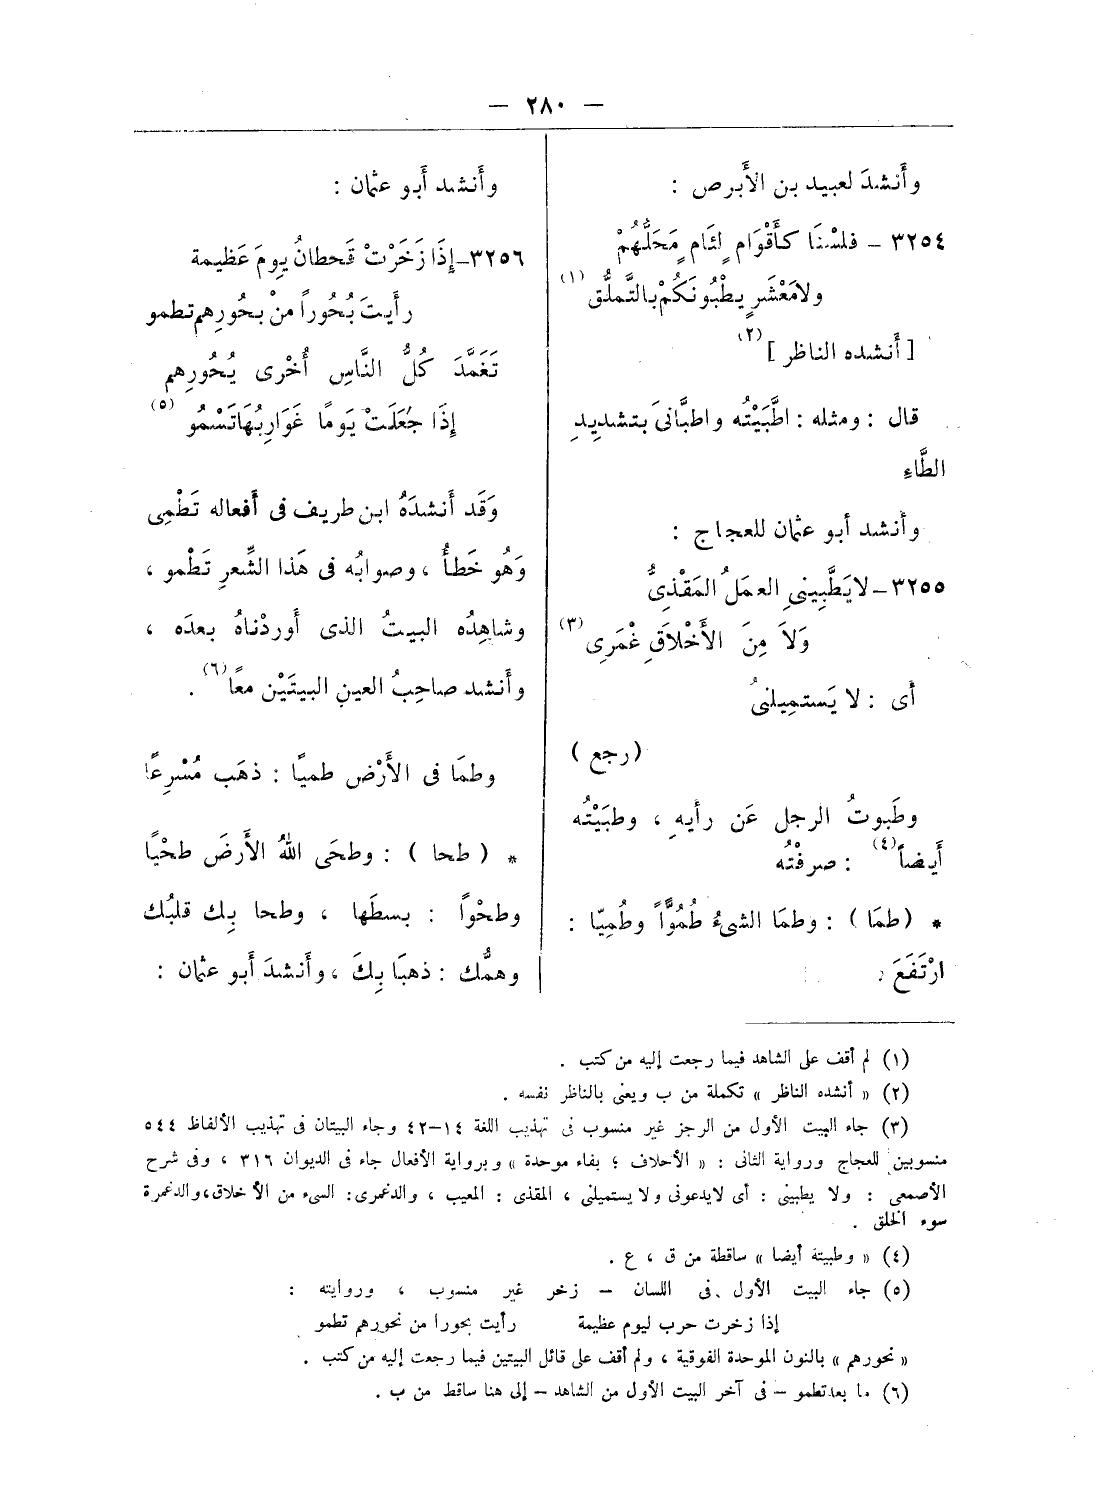 — ٢٨٠ —
وأَنشدَ لعبيد بن الأَبرص :
٣٢٥٤ – فلسْنَا كأَقْوَامٍ لِئَامٍ مَحَلُّهُمْ
ولامَعْشَرٍ يطْبُونَكُمْ بالتَّملُّق (١)
[ أَنشده الناظر ] (٢)
قال : ومثله : اطَّبَيْتُه واطبَّانىَ بتشديدِ
الطَّاءِ
وأَنشد أَبو عثمان للعجاج :
٣٢٥٥ – لايَطَّبِينىِ العملُ المَقْذِىُّ
وَلاَ مِنَ الأَخْلاَقِ غْمَرِى (٣)
أَى : لا يَستمِيلنىُ
( رجع )
وطَبوتُ الرجل عَن رأيهِ ، وطبَيْتُه
أَيضاً (٤) : صرفْتُه
* ( طمَا ) : وطمَا الشىءُ طُمُوًّا وطُمِيّا :
ارْتَفَعَ ؛
وأَنشد أَبو عثمان :
٣٢٥٦ – إِذَا زَخَرَتْ قَحطانُ يومَ عَظيمة
رأَيتَ بُحُوراً منْ بحُورِهم تطمو
تَغَمَّدَ كُلُّ النَّاسِ أُخْرى بُحُورِهم
إِذَا جُعَلَتْ يَومًا غَوَارِبُهَا تَسْمُو (٥)
وَقَد أَنشدَهُ ابن طريف فى أَفعاله تَطْمِى
وَهُو خَطأٌ ، وصوابُه فى هَذا الشِّعرِ تَطْمو ،
وشاهِدُه البيتُ الذى أَوردْناهُ بعدَه ،
وأَنشد صاحِبُ العينِ البيتَيْن معًا (٦) .
وطمَا فى الأَرْض طميًا : ذهَب مُسْرِعًا
* ( طحا ) : وطحَى اللهُ الأَرضَ طحْيًا
وطحْواً : بسطَها ، وطحا بِك قلبُك
وهمُّك : ذهبَا بِكَ ، وأَنشدَ أَبو عثمان :
(١) لم أقف على الشاهد فيما رجعت إليه من كتب .
(٢) « أنشده الناظر » تكملة من ب ويعنى بالناظر نفسه .
(٣) جاء البيت الأول من الرجز غير منسوب فى تهذيب اللغة ١٤–٤٢ وجاء البيتان فى تهذيب الألفاظ ٥٤٤
منسوبين للعجاج ورواية الثانى : « الأحلاف ؛ بفاء موحدة » وبرواية الأفعال جاء فى الديوان ٣١٦ ، وفى شرح
الأصمعى : ولا يطبينى : أى لايدعونى ولا يستميلنى ، المقذى : المعيب ، والدغمرى : السىء من الأخلاق ، والدغمرة
سوء الخلق .
(٤) « وطبيتة أيضا » ساقطة من ق ، ع .
(٥) جاء البيت الأول فى اللسان – زخر غير منسوب ، وروايته :
إذا زخرت حرب ليوم عظيمة رأيت بحورا من نحورهم تطمو
« نحورهم » بالنون الموحدة الفوقية ، ولم أقف على قائل البيتين فيما رجعت إليه من كتب .
(٦) ما بعد تطمو – فى آخر البيت الأول من الشاهد – إلى هنا ساقط من ب .